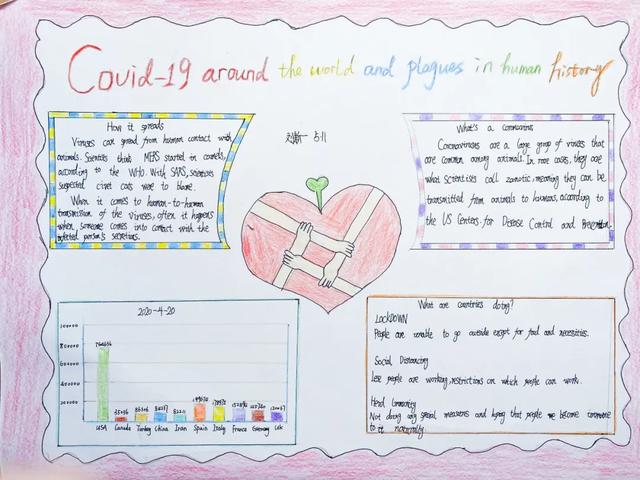 Covid-19 around the world and plagues in human history
How it spreads
Viruses can spread from human contact with
animals. Scientists think MERS started in camels,
according to the WHO. With SARS, scientists
suspected civet cats were to blame.
When it comes to human-to-human
transmission of the viruses, often it happens
when someone comes into contact with the
infected person's secretions.
5.11
What's a coronavirus
Coronaviruses are a large group of viruses that
are common among animals. In rare cases, they are
what scientists call zoonotic, meaning they can be
transmitted from animals to humans, according to
the US Centers for Disease Control and Prevention.
2020-4-20
USA Canada Turkey China Iran Spain Italy France Germany UK
What are countries doing?
LOCKDOWN
People are unable to go outside except for food and necessities.
Social Distancing
Less people are working, restrictions on which people can work.
Herd Immunity
Not doing any special measures and hoping that people become immune
to it normally.